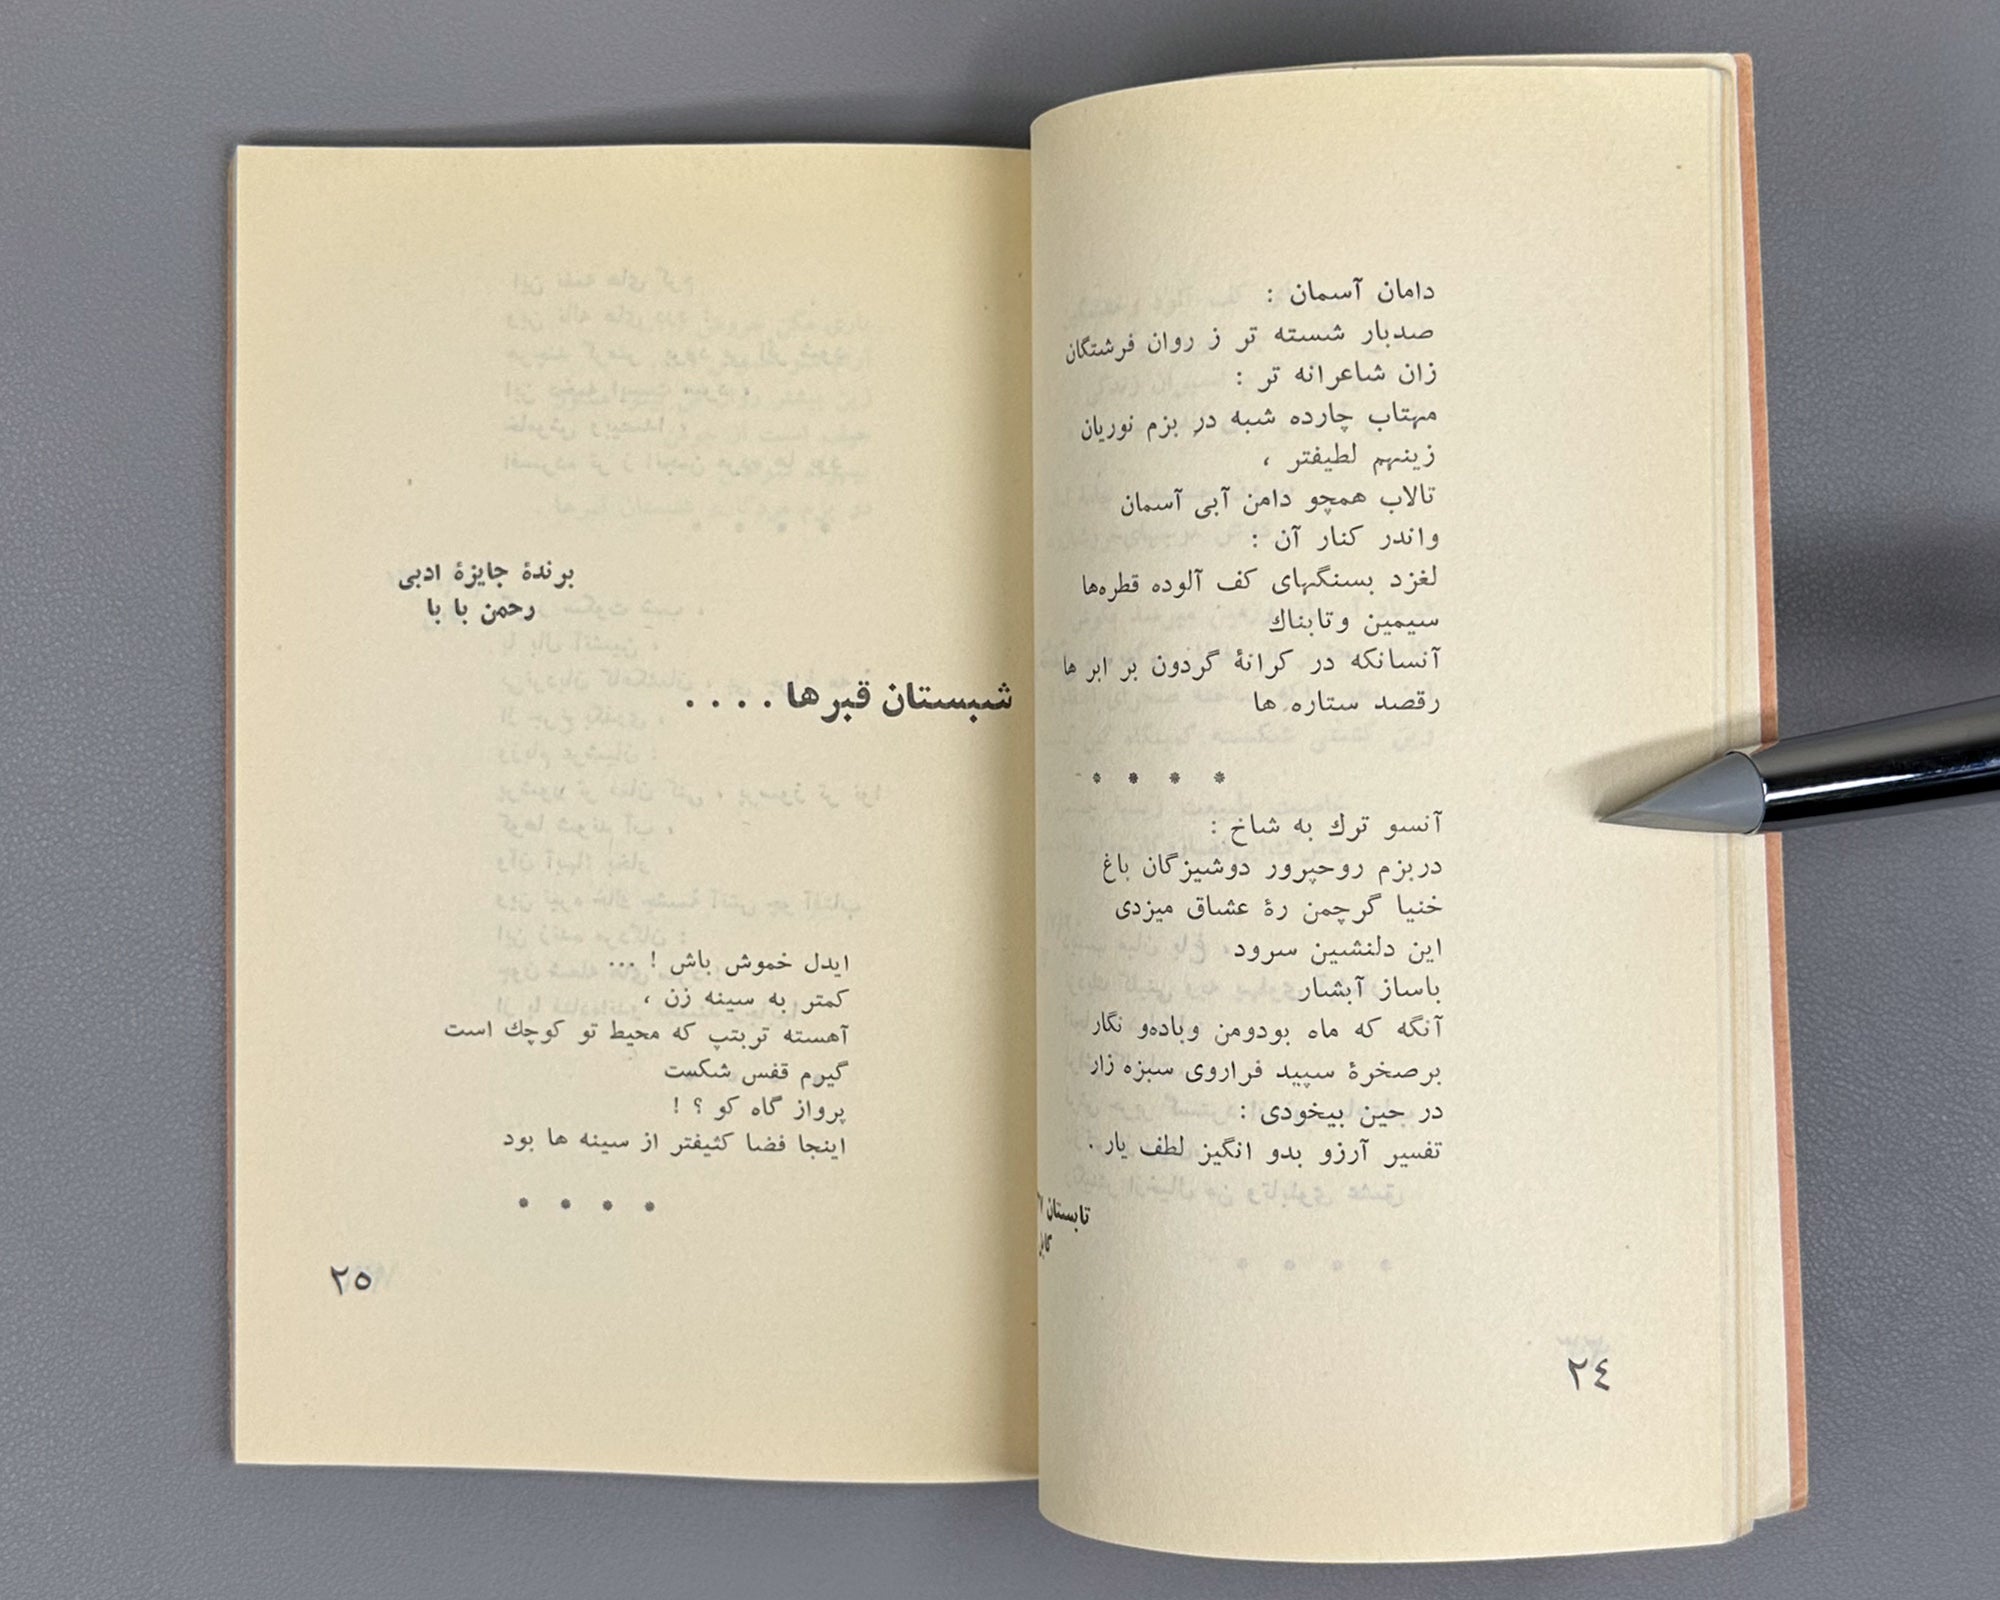 دامان آسمان :
صدبار شسته تر ز روان فرشتگان
زان شاعرانه تر :
مهتاب چارده شبه در بزم نوریان
زینهم لطیفتر ،
تالاب همچو دامن آبی آسمان
واندر کنار آن :
لغزد بسنگهای کف آلوده قطره‌ها
سیمین وتابناك
آنسانکه در کرانهٔ گردون بر ابر ها
رقصد ستاره ها
* * * *
آنسو ترك به شاخ :
دربزم روحپرور دوشیزگان باغ
خنیا گرچمن رهٔ عشاق میزدی
این دلنشین سرود
باساز آبشار
آنگه که ماه بودومن وباده‌و نگار
برصخرهٔ سپید فراروی سبزه زار
در جین بیخودی :
تفسیر آرزو بدو انگیز لطف یار .
تابستان
٢٤
برندهٔ جایزهٔ ادبی
رحمن با با
شبستان قبرها . . . .
ایدل خموش باش ! ...
کمتر به سینه زن ،
آهسته تربتپ که محیط تو کوچك است
گیرم قفس شکست
پرواز گاه کو ؟ !
اینجا فضا کثیفتر از سینه ها بود
* * * *
٢٥